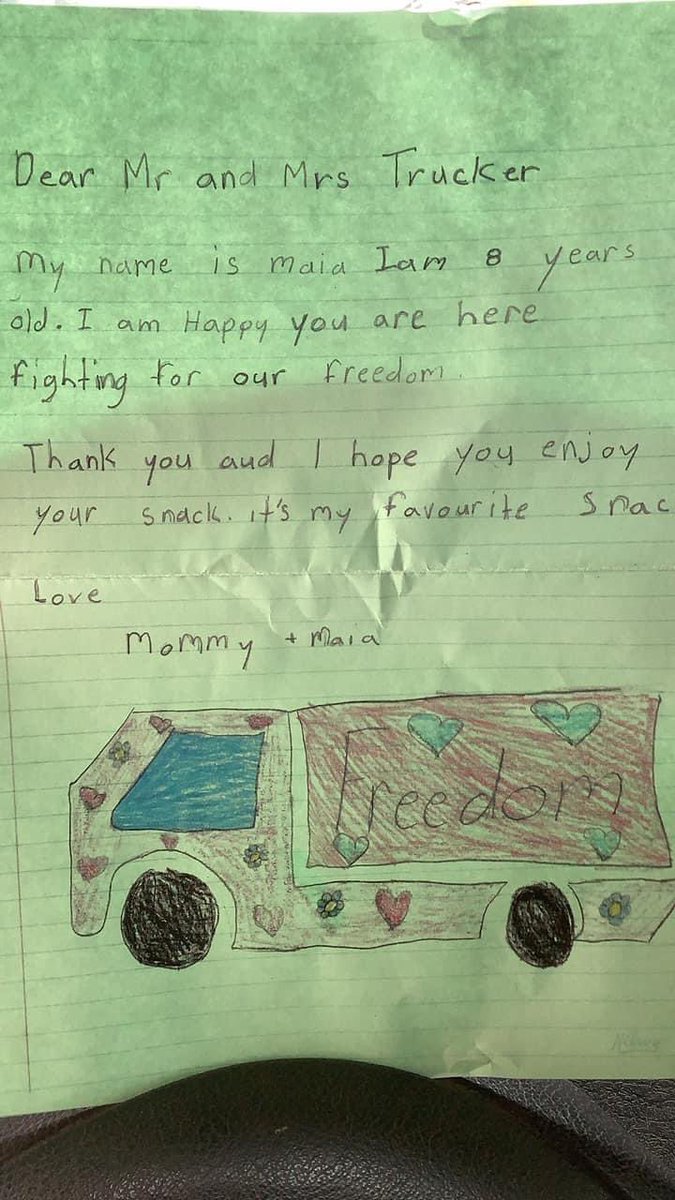 Dear Mr and Mrs Trucker
My name is maia Iam 8 years
old. I am Happy you are here
fighting for our freedom.
Thank you and I hope you enjoy
your snack. it's my favourite Snac
Love
Mommy + Maia
Freedom